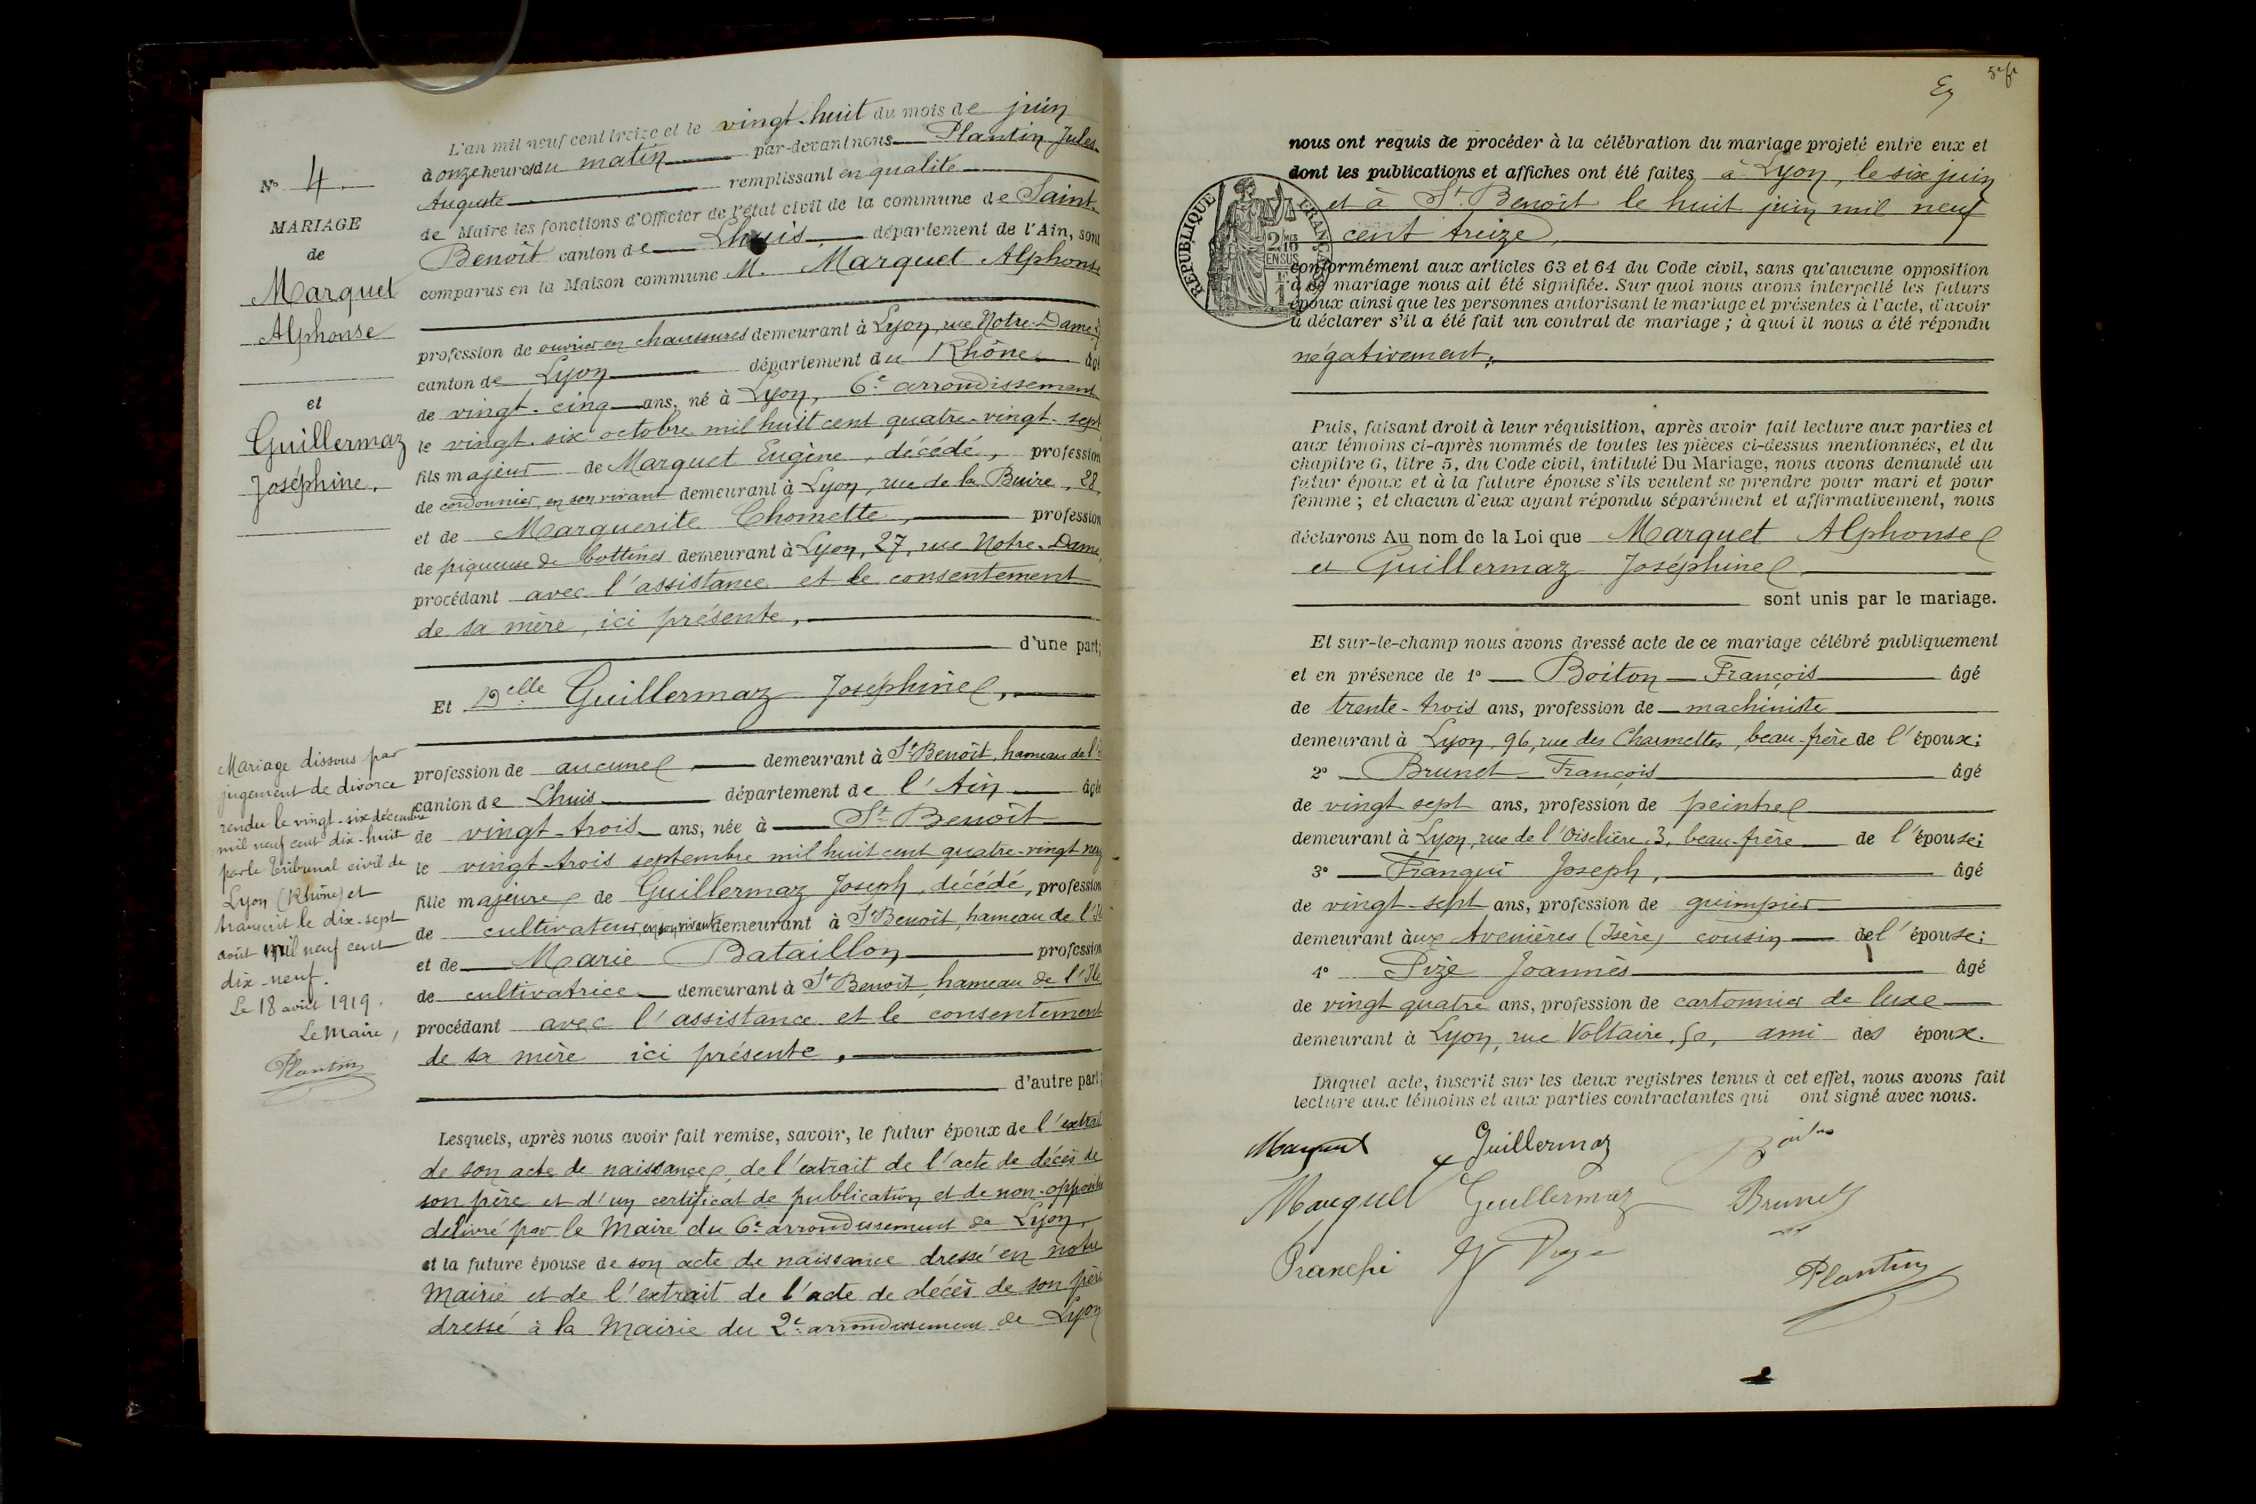 N° 4
MARIAGE
de
Marquet
Alphonse
et
Guillermaz
Joséphine.
Mariage dissous par
jugement de divorce
rendu le vingt-six décembre
mil neuf cent dix-huit
par le Tribunal civil de
Lyon (Rhône) et
transcrit le dix-sept
août mil neuf cent
dix-neuf.
Le 18 août 1919.
Le Maire,
Plantin
L'an mil neuf cent treize et le vingt-huit du mois de juin
à onze heures du matin par-devant nous Plantin Jules
Auguste remplissant en qualité
de Maire les fonctions d'Officier de l'état civil de la commune de Saint-
Benoît canton de Lhuis département de l'Ain, sont
comparus en la Maison commune M. Marquet Alphonse
profession de ouvrier en chaussures demeurant à Lyon, rue Notre-Dame
canton de Lyon département du Rhône âgé
de vingt-cinq ans, né à Lyon, 6e arrondissement
le vingt-six octobre mil huit cent quatre-vingt-sept
fils majeur de Marquet Eugène, décédé, profession
de cordonnier en son vivant demeurant à Lyon, rue de la Buire, 28,
et de Marguerite Chomette, profession
de piqueuse de bottines demeurant à Lyon, 27, rue Notre-Dame,
procédant avec l'assistance et le consentement
de sa mère, ici présente,
d'une part;
Et Delle Guillermaz Joséphine,
profession de aucune demeurant à St Benoît, hameau de l'
canton de Lhuis département de l'Ain âgée
de vingt-trois ans, née à St Benoît
le vingt-trois septembre mil huit cent quatre-vingt neuf
fille majeure de Guillermaz Joseph, décédé, profession
de cultivateur, en son vivant demeurant à St Benoît, hameau de l'Ile
et de Marie Bataillon profession
de cultivatrice demeurant à St Benoît, hameau de l'Ile
procédant avec l'assistance et le consentement
de sa mère ici présente,
d'autre part;
Lesquels, après nous avoir fait remise, savoir, le futur époux de l'extrait
de son acte de naissance, de l'extrait de l'acte de décès de
son père et d'un certificat de publication et de non-opposition
délivré par le Maire du 6e arrondissement de Lyon,
et la future épouse de son acte de naissance dressé en notre
Mairie et de l'extrait de l'acte de décès de son père
dressé à la Mairie du 2e arrondissement de Lyon
nous ont requis de procéder à la célébration du mariage projeté entre eux et
dont les publications et affiches ont été faites à Lyon, le six juin
et à St Benoît le huit juin mil neuf
cent treize,
RÉPUBLIQUE FRANÇAISE
conformément aux articles 63 et 64 du Code civil, sans qu'aucune opposition
à ce mariage nous ait été signifiée. Sur quoi nous avons interpellé les futurs
époux ainsi que les personnes autorisant le mariage et présentes à l'acte, d'avoir
à déclarer s'il a été fait un contrat de mariage ; à quoi il nous a été répondu
négativement.
Puis, faisant droit à leur réquisition, après avoir fait lecture aux parties et
aux témoins ci-après nommés de toutes les pièces ci-dessus mentionnées, et du
chapitre 6, titre 5, du Code civil, intitulé Du Mariage, nous avons demandé au
futur époux et à la future épouse s'ils veulent se prendre pour mari et pour
femme ; et chacun d'eux ayant répondu séparément et affirmativement, nous
déclarons Au nom de la Loi que Marquet Alphonse
et Guillermaz Joséphine
sont unis par le mariage.
Et sur-le-champ nous avons dressé acte de ce mariage célébré publiquement
et en présence de 1° Boiton François âgé
de trente-trois ans, profession de machiniste
demeurant à Lyon, 96, rue des Charmettes, beau-frère de l'époux;
2° Brunet François âgé
de vingt sept ans, profession de peintre
demeurant à Lyon, rue de l'Oiselière, 3, beau-frère de l'épouse;
3° Franqui Joseph, âgé
de vingt-sept ans, profession de guimpier
demeurant aux Avenières (Isère) cousin de l'épouse;
4° Pize Joannès âgé
de vingt quatre ans, profession de cartonnier de luxe
demeurant à Lyon, rue Voltaire, 50, ami des époux.
Duquel acte, inscrit sur les deux registres tenus à cet effet, nous avons fait
lecture aux témoins et aux parties contractantes qui ont signé avec nous.
Marquet Guillermaz Boiton
Marquet Guillermaz Brunet
Franchi Pize
Plantin